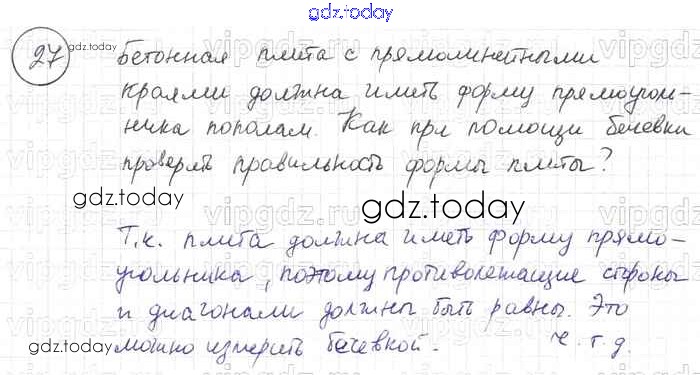 gdz.today
27 gdz.today Бетонная плита с прямолинейными
краями должна иметь форму прямоуголь-
ника пополам. Как при помощи бечевки
проверить правильность формы плиты?
gdz.today
gdz.today
Т.к. плита должна иметь форму прямо-
угольника, поэтому противолежащие стороны
gdz.today
и диагонали должны быть равны. Это
gdz.today можно измерить бечевкой. ч.т.д.